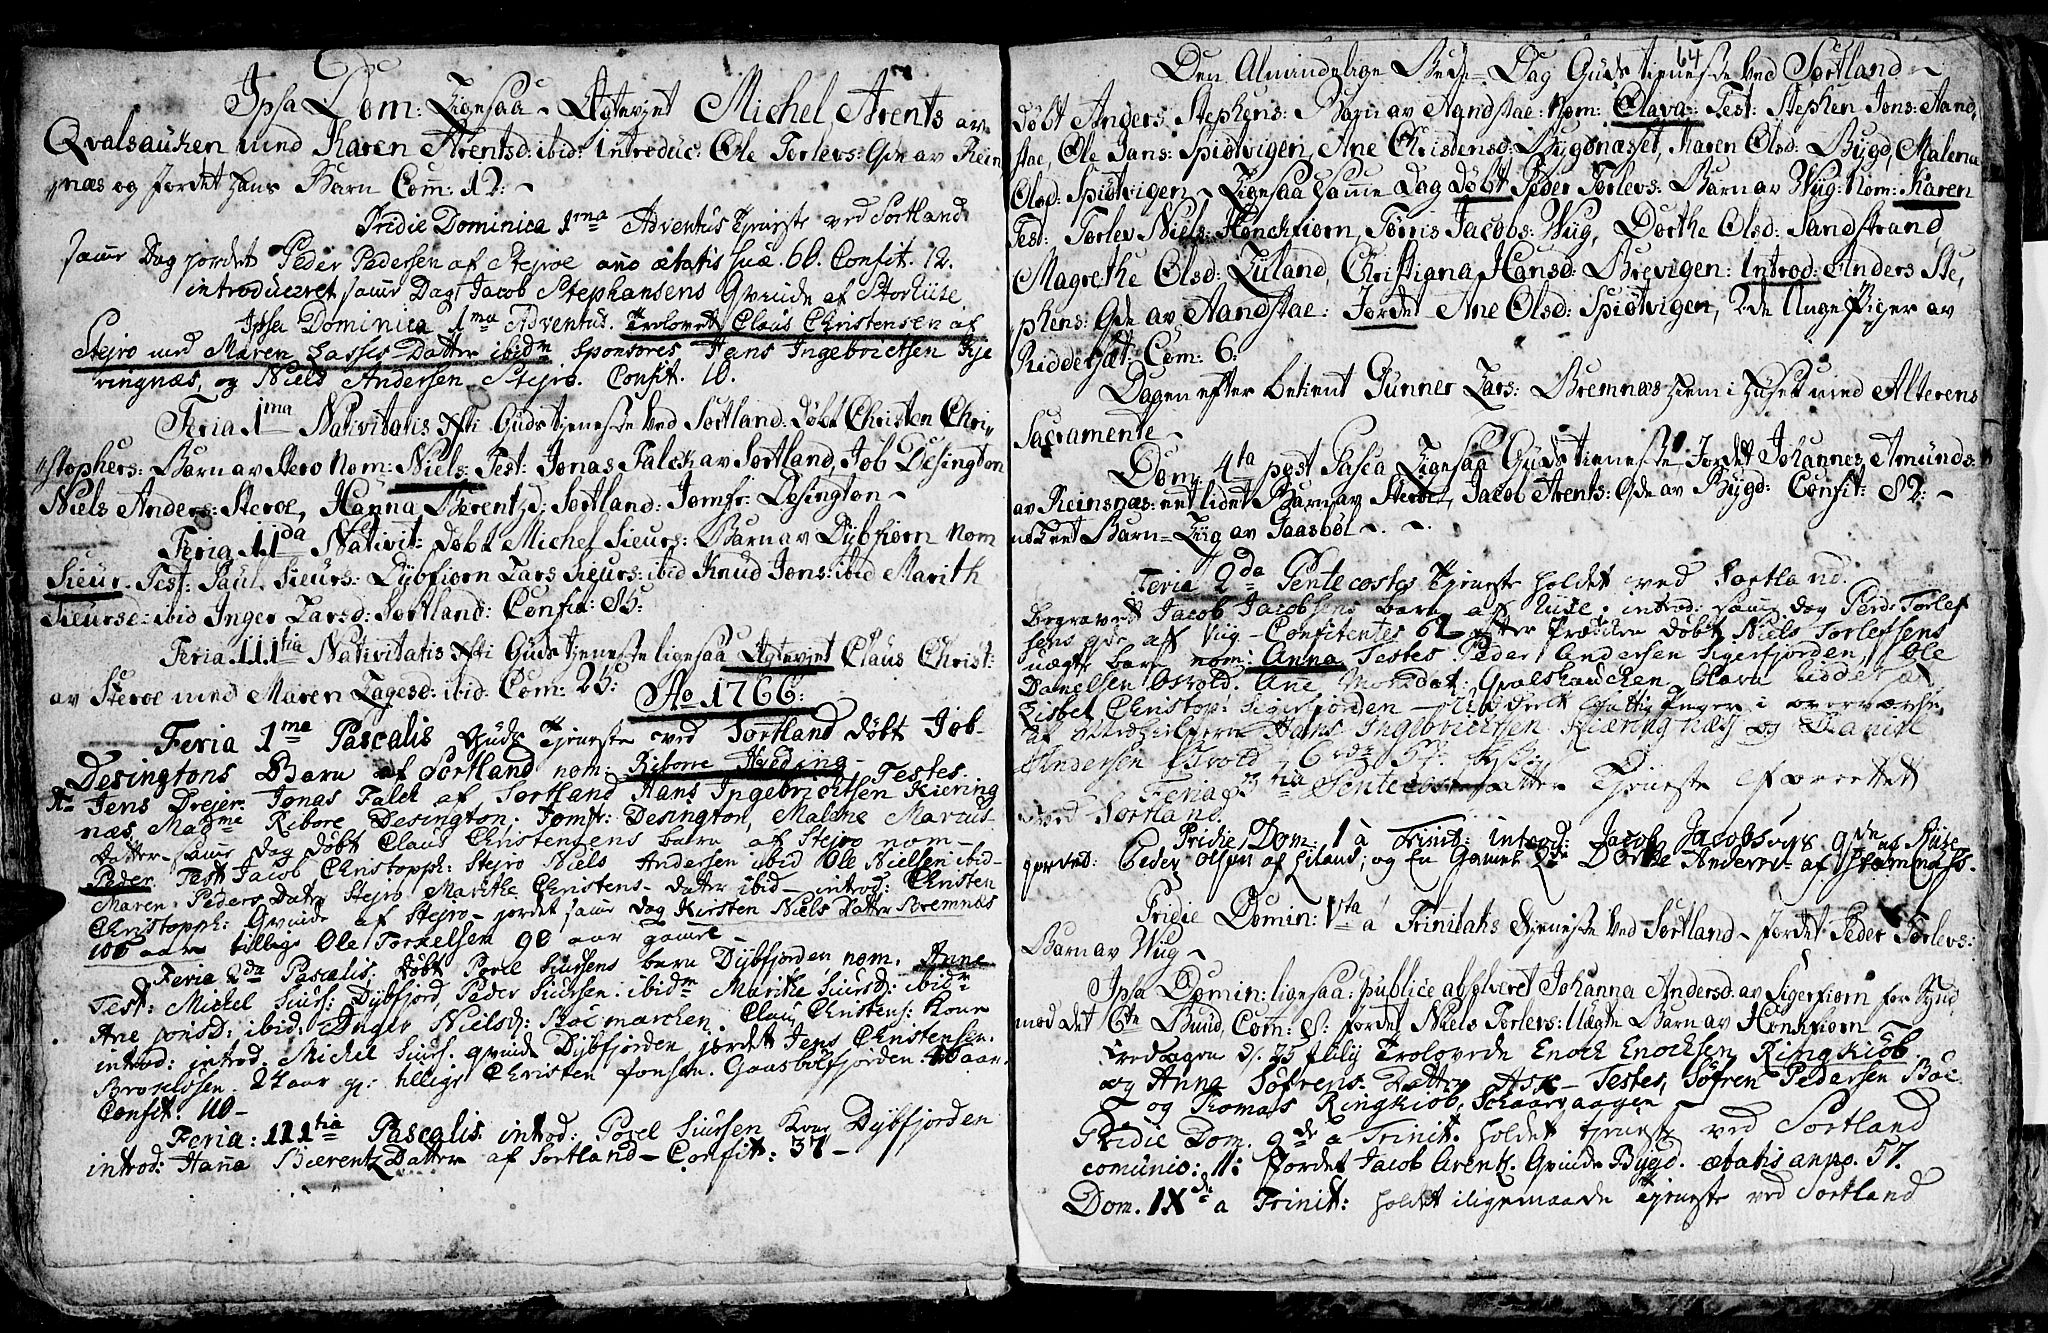 Ipsa Dom: Ligesaa Egteviet Michel Arents av
Qvalsauken med Karen Arentsd: ibid: introduc: Ole Torlevs: Qde av Rein
næs og jordet hans Barn Com: 12:
Pridie Dominica 1ma Adventus tieneste ved Sortland
samme Dag jordet Peder Pedersen af Stejroe ano ætatis suæ. 60. Confit. 12.
introduceret samme Dag Jacob Stephansens Qvinde af Storluse
Ipsa Dominica 1ma Adventus. Trolovet Claus Christensen af
Stejro med Maren Lasses Datter ibidm sponsores Hans Ingebrictsen Kje
ringnæs, og Niels Andersen Stejro. Confit. 10.
Feria 1ma Nativitatis Xsti Guds tieneste ved Sortland: Døbt Christen Chri
stophers: Barn av Steroe Nom: Niels: Test: Jonas Falck av Sortland, Job Desington
Niels Anders: Steroe, Hanna Berentzd: Sortland: Jomfr: Desington
Feria 11da Nativit: Døbt Michel Sieurs: Barn av Dybfiorn Nom
Sieur. Test: Paul Sieurs: Dybfiorn Lars Sieurs: ibid Knud Jons: ibid Marith
Sieursd: ibid Inger Larsd: Sortland: Confit: 85:
Feria 111tia Nativitatis Xsti Guds tieneste ligesaa Egteviet Claus Christ:
av Steroe med Maren Lagesd: ibid: Com: 25: Ao 1766:
Feria 1ma Pascalis Guds Tjeneste ved Sortland døbt Job
Desingtons Barn af Sortland nom: Ribore Hveding Testes.
Hr Jens Drejer. Jonas Falck af Sortland Hans Ingebrichtsen Kiering
næs, Madme Ribore Desington. Jomfr: Desington, Malene Marcus
Datter samme Dag døbt Claus Christensens barn af Stejro nom
Peder. Test Jacob Christopph: Stejro Niels Andersen ibid Ole Nielsen ibid
Maren Peders Datter Stejro Marithe Christens datter ibid introd: Christen
Christopph: Qvinde af Stejro jordet samme Dag Kirsten Niels Datter Bremnæs
106 aar tillige Ole Torkelsen 90 aar gamel
Feria 2da Pascalis; døbt Porel Siursens barn Dybfjorden nom. Anne
Test: Michel Siurs: Dybfjord, Peder Siursen. ibidm Marithe Siursd: ibidm
Ane Jonsd: ibid: Inger Nielsd: Boemarchen. Claus Christens: Kone
introd: introd. Michel Siurs. qvinde Dybfjorden jordet Jens Christensen
Brokløsen. 24 aar gl: tillige Christen Jonsen. Gaasbolfjorden 46 aar.
Confit. 110
Feria: 111tia Pascalis introd: Porel Siursen Kone Dybfjorden
introd: Hana Bærentz Datter af Sortland Confit: 37
64
Den Almindelige Bede-Dag Guds tieneste ved Sortland
døbt Anders Stephens: Barn av Aandstae: Nom: Olava: Test: Stephen Jons: Aand
stae, Ole Jans: Spiøtvigen, Ane Christensd: Bygdnæsset, Karen Olsd: Bygd, Malena
Olsd: Spiøtvigen Ligesaa samme Dag Døbt Peder Torlevs: Barn av Wug: Nom: Karen
Test: Torlev Niels: Honckfiorn, Tørris Jacobs: Wug, Dorthe Olsd: Sandstrand
Magrethe Olsd: Luland, Christiana Hansd: Brevigen: Introd: Anders Ste
phens: Qde av Aandstae: Jordet Ane Olsd: Spiøtvigen, 2de Unge Piger av
Riddersæt: Com: 6:
Dagen efter betient Gunner Lars: Bremnæs hiem i huset med Alterens
Sacramente
Dom: 4ta post Pasca Ligesaa Guds tieneste Jordet Johannes Amunds:
av Reinsnæs: eet lidet Barn av Steroe, Jacob Arents: Qde av Bygd: Confit: 82:
nok eet Barn-Liig av Gaasbøl
Feria 2da Pentecostes tjeneste holdet ved Sortland.
begravet Jacob Jacobsens barn af Huse: introd: samme dag Perd: Torlef
sens qde af Vug Confitentes 62 efter Præchen døbt Niels Torlefsens
uægte barn nom: Anna Testes Peder Andersen Sigerfjorden, Ole
Danelsen Osvold. Ane Monsdat: Qvalshaucken Olava
Lisbet Christop: Sigerfjorden i overværelse
af Medhielperne Hans Ingebrichtsen Kiæringnæs og Daniel
Andersen Osvold
Feria 3tia Pentecost: atter Tjeneste forrettet
ved Sortland.
Pridie Dom. 1 a Trinit: introd: Jacob Jacobsens qde af Huse
jordet: Peder Olsen af Liland, og En Gammel Dorthe Andersd: af
Pridie Domin: Vta a Trinitatis tieneste ved Sortland Jordet Peder Torlevs:
Barn av Wug
Ipsa Domin: ligesaa: publice absolveret Johanna Andersd: av Sigerfiorn for Synd
mod det 6te Buud, Com: 8: Jordet Niels Torlevs: Uægte Barn av Honkfiorn
Fredagen d: 25 July Trolovede Enoch Enochsen Ringkiøb
og Anna Søfrens Datter Ask Testes, Søfren Pedersen Boe
og Thomas Ringkiøb, Schaarvaagen
Pridie Dom. 9de a Trinit. holdet tjeneste ved Sortland
comunic: 11: Jordet Jacob Arentz. Qvinde Bygd. ætatis anno. 57.
Dom. IXde a Trinit: holdet iligemaade tjeneste ved Sortland